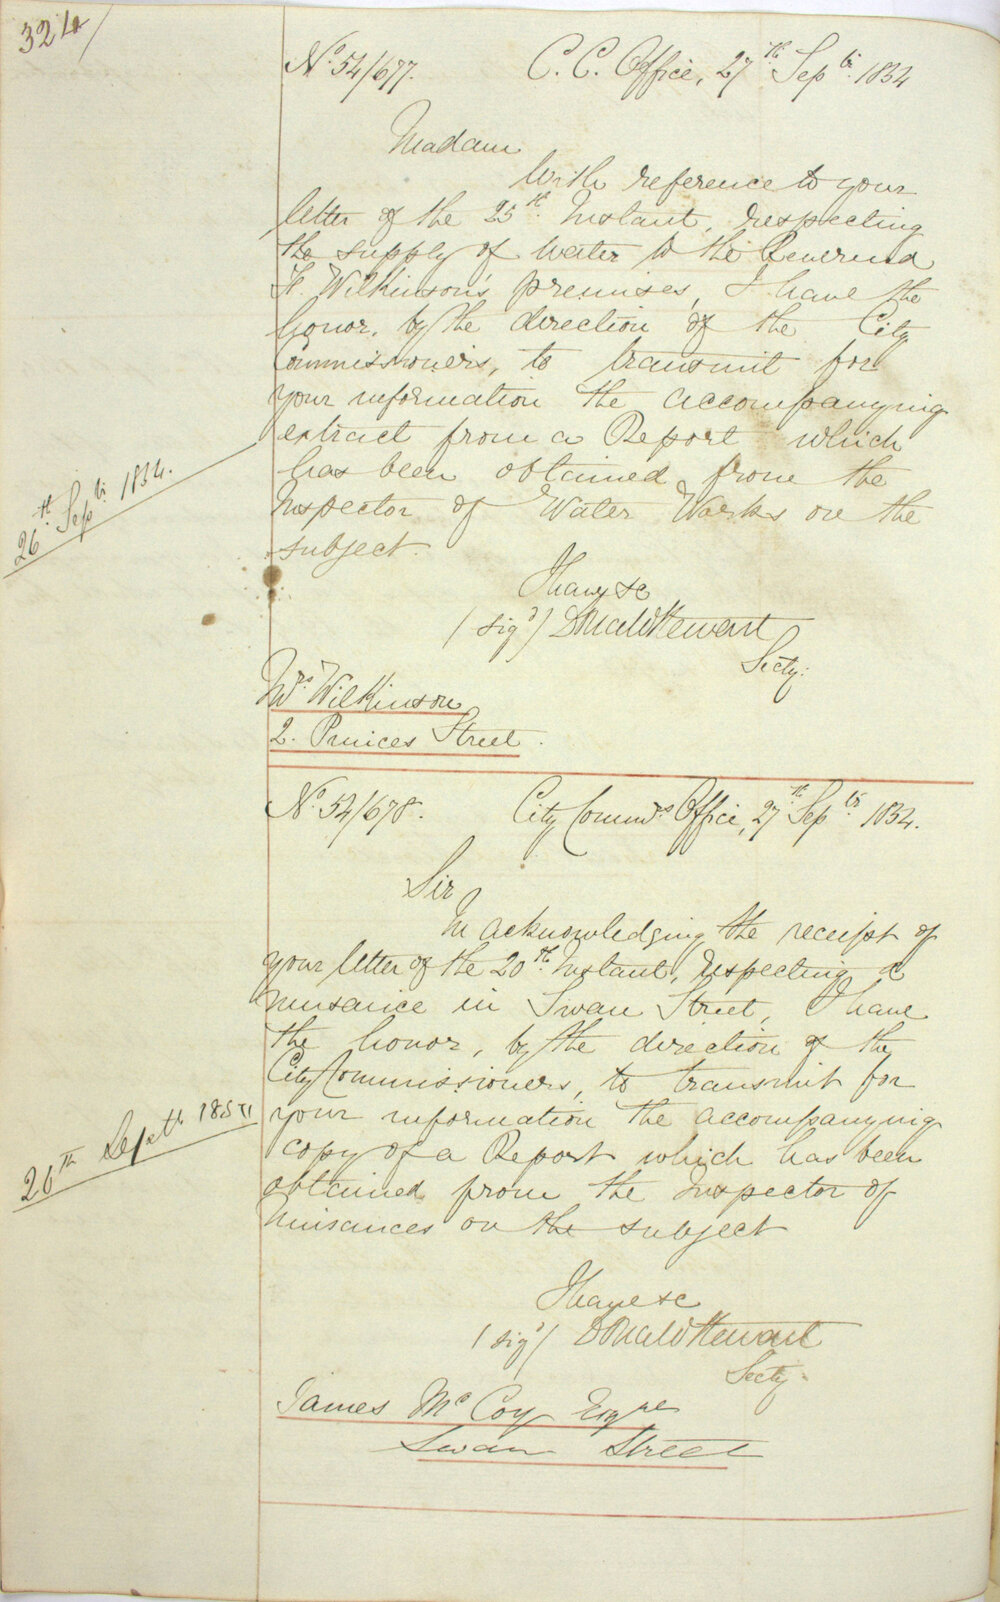 324
No. 54/677. C. C. Office, 27th Septr. 1854
Madam
With reference to your
letter of the 25th Instant, respecting
the supply of water to the Reverend
F. Wilkinson's premises, I have the
honor, by the direction of the City
Commissioners, to transmit for
your information the accompanying
extract from a Report which
has been obtained from the
Inspector of Water Works on the
subject.
26th Septr. 1854.
I have &c
(sigd) Donald Stewart
Secty:
Mrs. Wilkinson
2. Princes Street.
No. 54/678. City Commrs Office, 27th Septr. 1854.
Sir
In acknowledging the receipt of
your letter of the 20th Instant, respecting a
nuisance in Swan Street, I have
the honor, by the direction of the
City Commissioners, to transmit for
your information the accompanying
copy of a Report which has been
obtained from the Inspector of
Nuisances on the subject
26th Septh 1854
I have &c
(sigd) Donald Stewart
Secty.
James McCoy Esqre
Swan Street